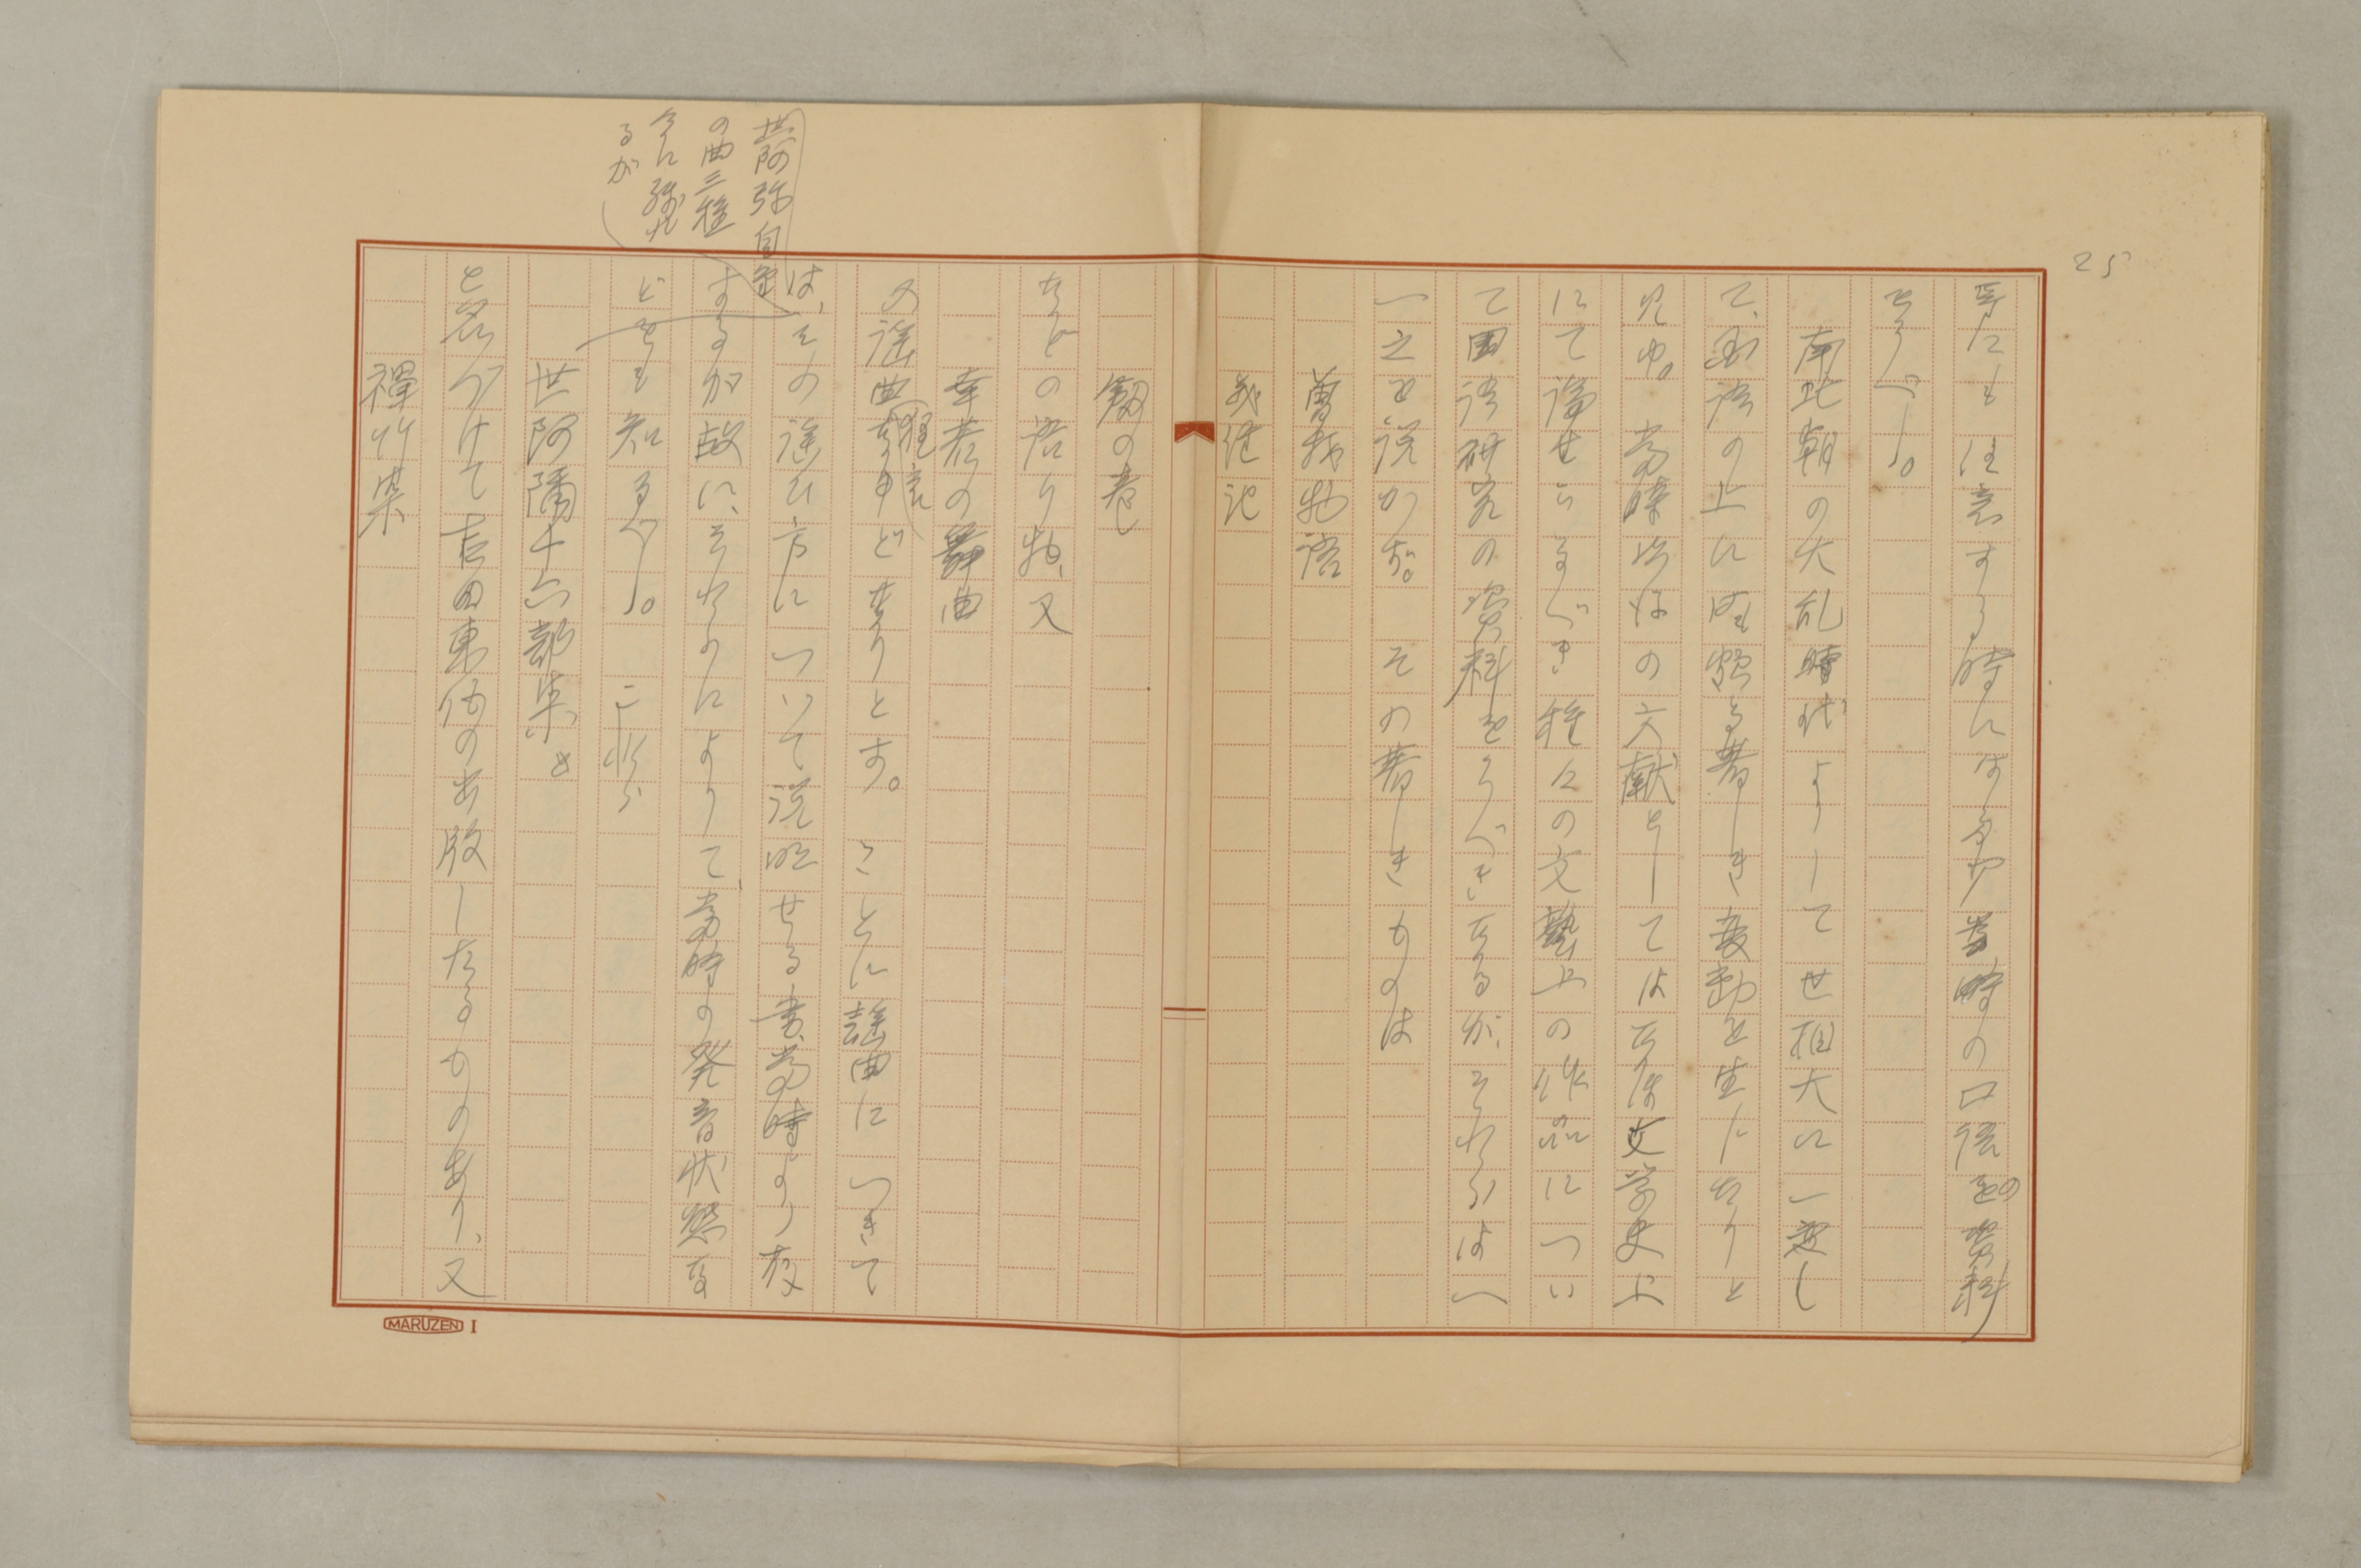 25
事にも注意する時にはまた当時の口語の資料
なるべし。
南北朝の大乱時代よりして世相大に一変し
て、国語の上にも頗る著しき変動を生じたりと
見ゆ。当時以後の文献としてはなほ文学史上
にて論ぜらるべき種々の文藝上の作品につい
て国語研究の資料をうべきなるが、それらは一
一之を説かず。その著しきものは
曽我物語
義経記
劔の巻
などの語り物、又
幸若の舞曲
又謡曲、狂言などなりとす。ことに謡曲につきて
は、世阿弥自筆
の曲三種
今に残れ
るが
その謡ひ方について説明せる書当時より存
するが故に、それらによりて、当時の発音状態な
どをも知るべし。これら
世阿彌十六部集と
と名づけて吉田東伍の出版したるものあり、又
禅竹集
MARUZEN I